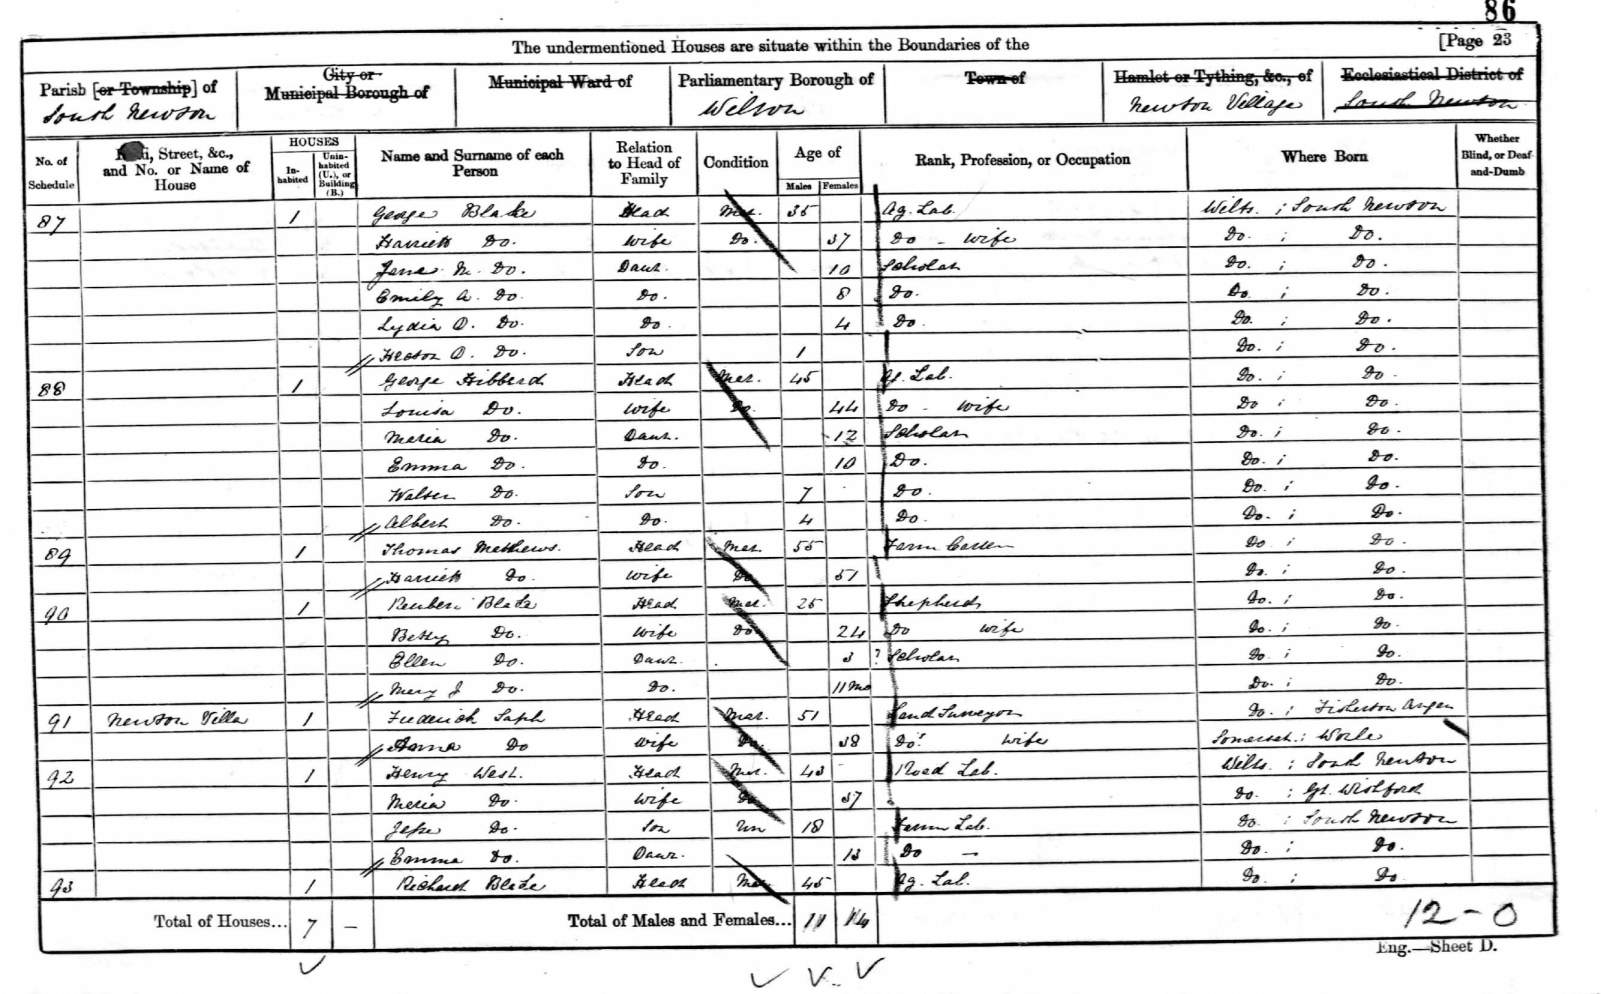 86
The undermentioned Houses are situate within the Boundaries of the [Page 23
Parish [or Township] of South Newton
City or Municipal Borough of
Municipal Ward of
Parliamentary Borough of Wilton
Town of
Hamlet or Tything, &c., of Newton Village
Ecclesiastical District of South Newton
No. of Schedule
Street, &c., and No. or Name of House
HOUSES
In-habited
Unin-habited (U.), or Building (B.)
Name and Surname of each Person
Relation to Head of Family
Condition
Age of
Males Females
Rank, Profession, or Occupation
Where Born
Whether Blind, or Deaf-and-Dumb
87 1 George Blake Head Mar. 35 Ag. Lab. Wilts. ; South Newton
Harriett Do. Wife Do. 37 Do - Wife Do. ; Do.
Jane M. Do. Daur. 10 Scholar Do. ; Do.
Emily A. Do. Do. 8 Do. Do. ; Do.
Lydia O. Do. Do. 4 Do. Do. ; Do.
Hestor O. Do. Son 1 Do. ; Do.
88 1 George Hibberd Head Mar. 45 Ag. Lab. Do. ; Do.
Louisa Do. Wife Do. 44 Do - Wife Do ; Do.
Maria Do. Daur. 12 Scholar Do. ; Do.
Emma Do. Do. 10 Do. Do. ; Do.
Walter Do. Son 7 Do. Do. ; Do.
Albert Do. Do. 4 Do. Do. ; Do.
89 1 Thomas Mathews. Head Mar. 55 Farm Carter Do ; Do.
Harriett Do. Wife Do 51 Do. ; Do.
90 1 Reuben Blake Head Mar. 25 Shepherd Do. ; Do.
Betsy Do. Wife Do 24 Do Wife Do. ; Do.
Ellen Do. Daur. 3 ? Scholar Do. ; Do.
Mary J Do. Do. 11 Mo Do. ; Do.
91 Newton Villa 1 Frederick Saph Head Mar. 51 Land Surveyor Do. ; Fisherton Anger
Anna Do Wife Do. 38 Do. Wife Somerset. ; Worle
92 1 Henry West. Head Mar. 43 Road Lab. Wilts. ; South Newton
Maria Do. Wife Do 37 Do. ; Gt. Wishford
Jesse Do. Son Un 18 Farm Lab. Do. ; South Newton
Emma Do. Daur. 13 Do - Do. ; Do.
93 1 Richard Blake Head Mar 45 Ag. Lab. Do. ; Do
Total of Houses... 7 - Total of Males and Females... 11 14 12-0
Eng.—Sheet D.